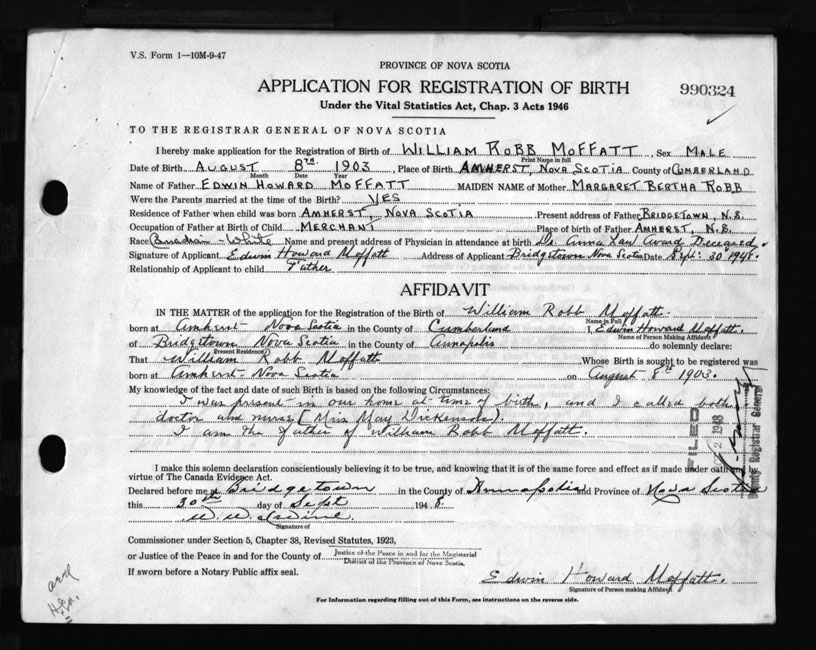 V.S. Form 1—10M-9-47
PROVINCE OF NOVA SCOTIA
APPLICATION FOR REGISTRATION OF BIRTH 990324
Under the Vital Statistics Act, Chap. 3 Acts 1946
TO THE REGISTRAR GENERAL OF NOVA SCOTIA
I hereby make application for the Registration of Birth of WILLIAM ROBB MOFFATT, Sex MALE
Print Name in full
Date of Birth AUGUST 8TH 1903, Place of Birth AMHERST, NOVA SCOTIA County of CUMBERLAND
Month Date Year
Name of Father EDWIN HOWARD MOFFATT MAIDEN NAME of Mother MARGARET BERTHA ROBB
Were the Parents married at the time of the Birth? YES
Residence of Father when child was born AMHERST, NOVA SCOTIA Present address of Father BRIDGETOWN, N.S.
Occupation of Father at Birth of Child MERCHANT Place of birth of Father AMHERST, N.S.
Race Canadian - White Name and present address of Physician in attendance at birth Dr. Anna Deceased
Signature of Applicant Edwin Howard Moffatt Address of Applicant Bridgetown Nova Scotia Date Sept. 30 1948.
Relationship of Applicant to child Father
AFFIDAVIT
IN THE MATTER of the application for the Registration of the Birth of William Robb Moffatt
Name in Full
born at Amherst - Nova Scotia in the County of Cumberland I, Edwin Howard Moffatt.
Name of Person Making Affidavit
of Bridgetown Nova Scotia in the County of Annapolis do solemnly declare:
Present Residence
That William Robb Moffatt Whose Birth is sought to be registered was
born at Amherst - Nova Scotia on August 8th 1903.
My knowledge of the fact and date of such Birth is based on the following Circumstances:
I was present in our home at time of birth, and I called both
doctor and nurse (Miss May Dickenson).
I am the father of William Robb Moffatt.
FILED
OCT 2 1948
Deputy Registrar General
I make this solemn declaration conscientiously believing it to be true, and knowing that it is of the same force and effect as if made under oath and by
virtue of The Canada Evidence Act.
Declared before me at Bridgetown in the County of Annapolis and Province of Nova Scotia
this 30th day of Sept 1948
Signature of
Commissioner under Section 5, Chapter 38, Revised Statutes, 1923,
or Justice of the Peace in and for the County of Justice of the Peace in and for the Magisterial
District of the Province of Nova Scotia.
If sworn before a Notary Public affix seal.
Edwin Howard Moffatt.
Signature of Person making Affidavit
For Information regarding filling out of this Form, see instructions on the reverse side.